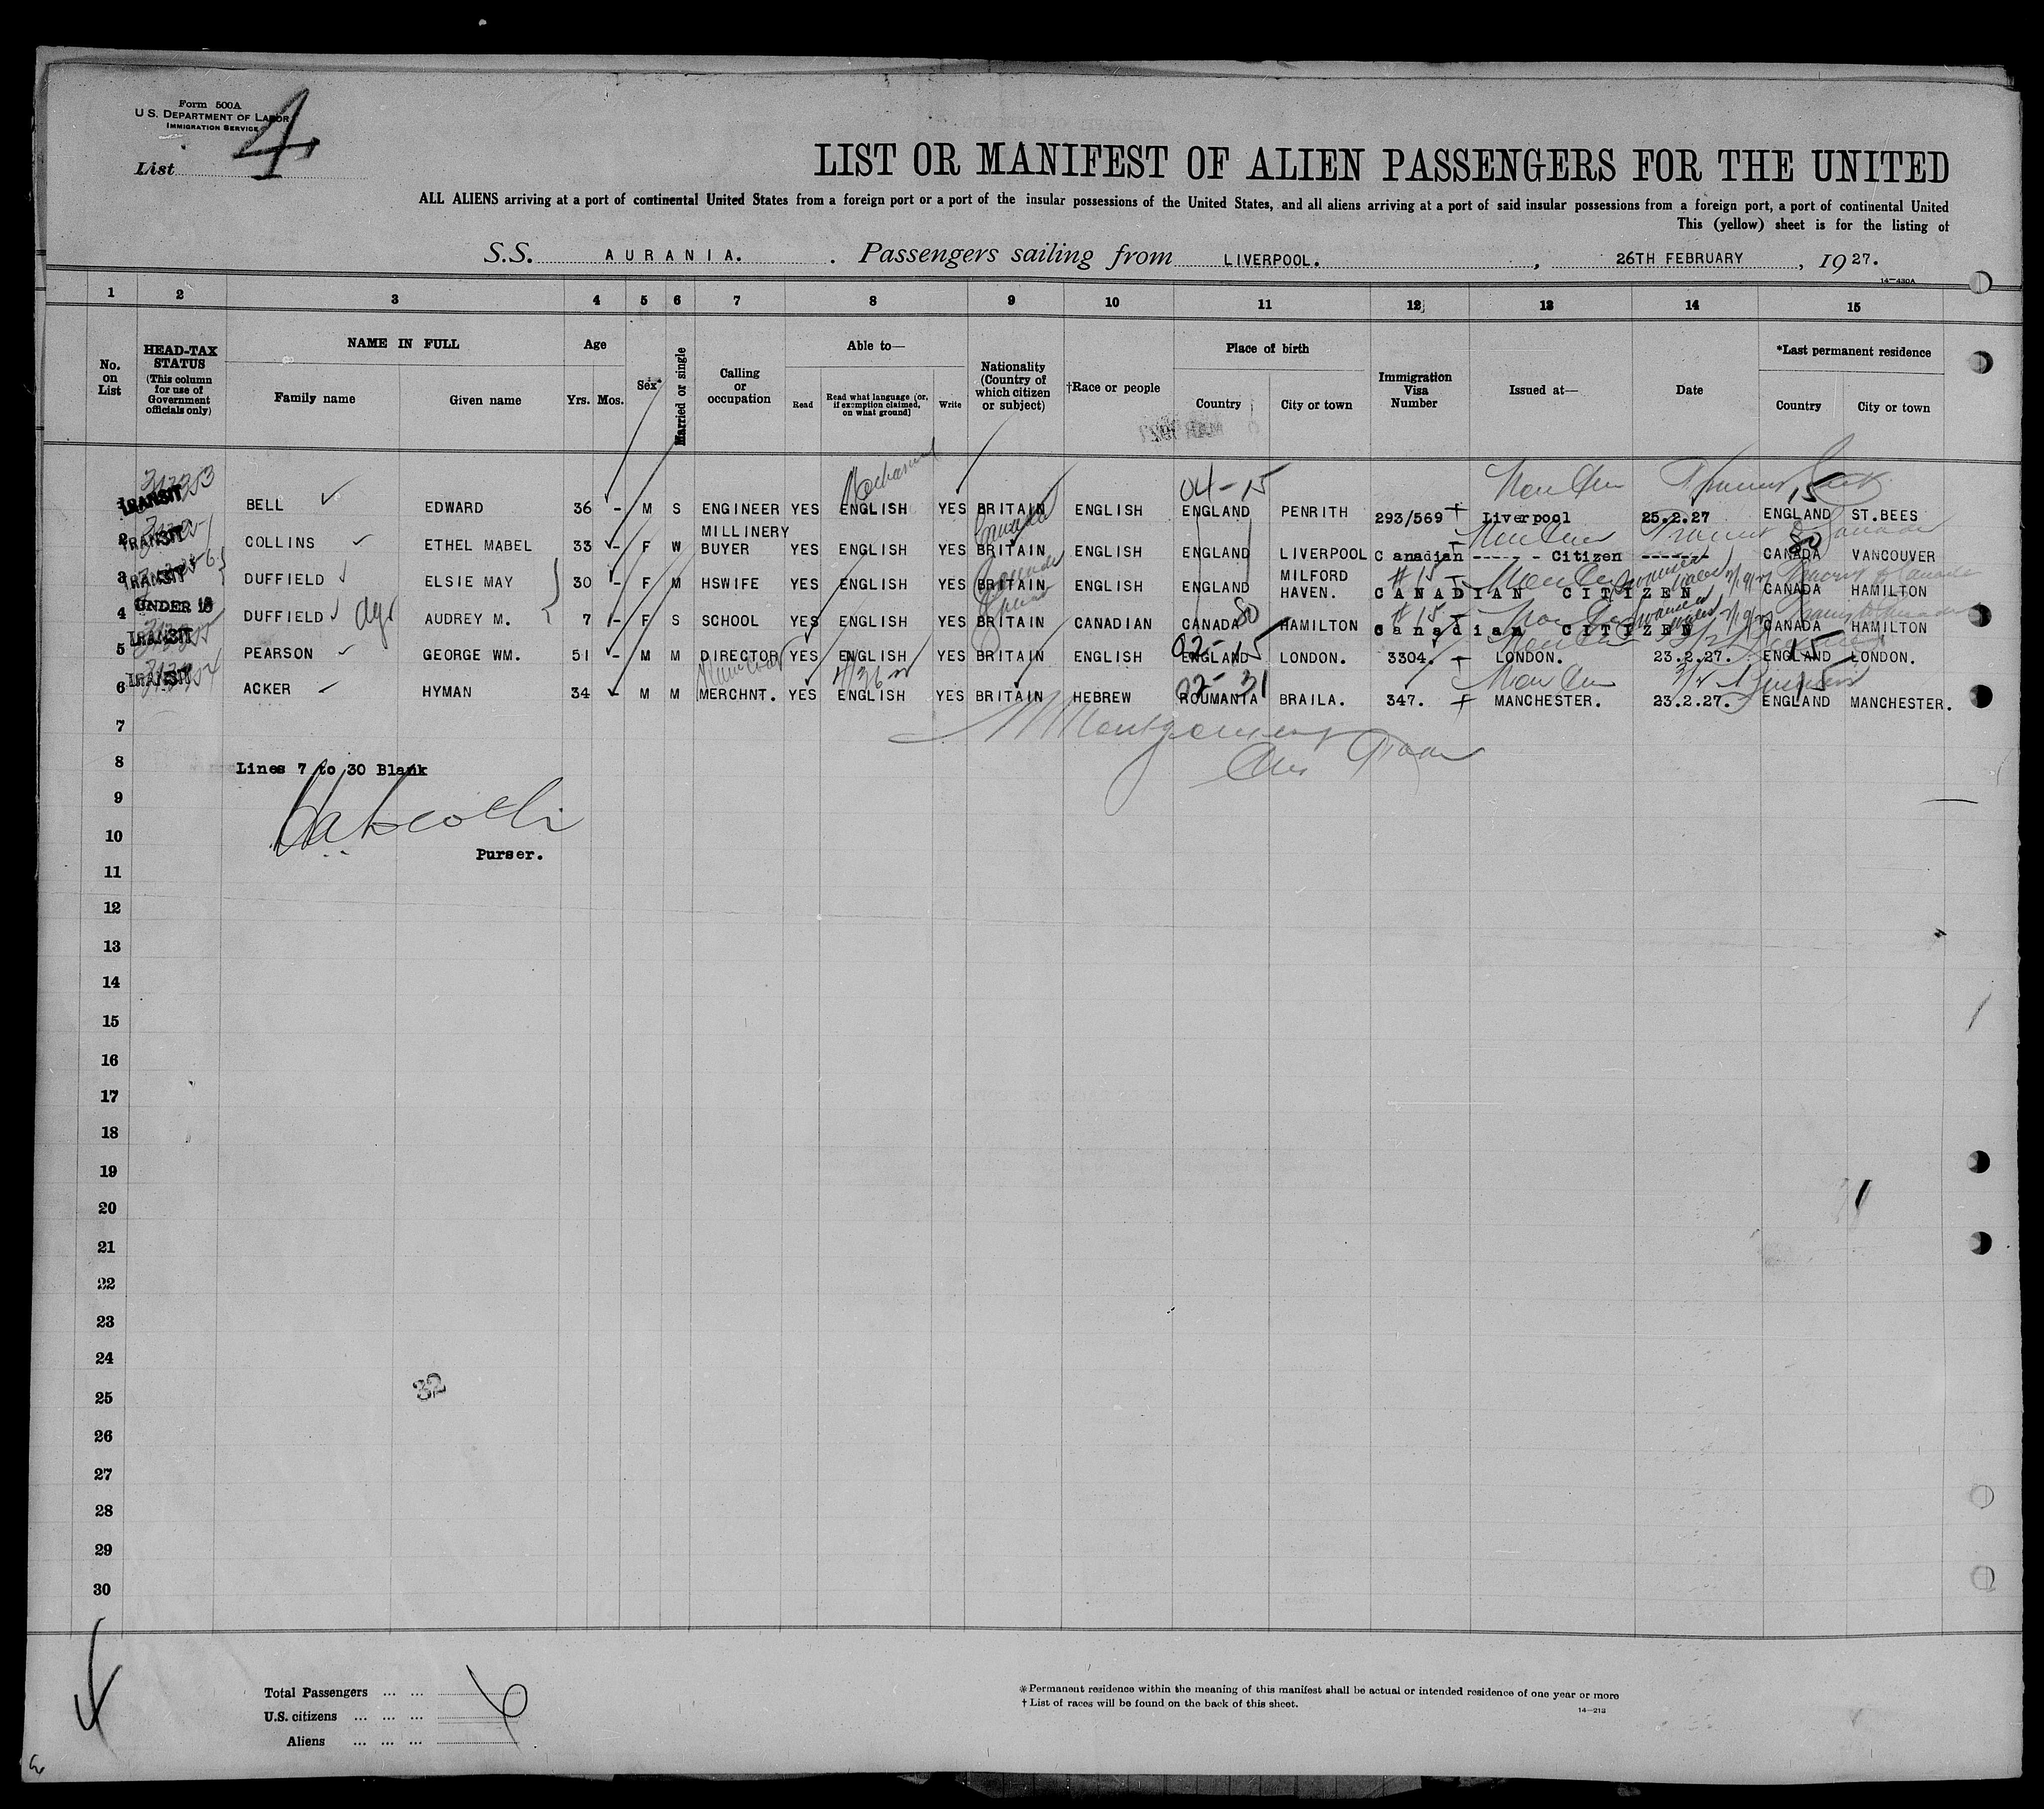 Form 500A
U.S. DEPARTMENT OF LABOR
IMMIGRATION SERVICE
List 4
LIST OR MANIFEST OF ALIEN PASSENGERS FOR THE UNITED
ALL ALIENS arriving at a port of continental United States from a foreign port or a port of the insular possessions of the United States, and all aliens arriving at a port of said insular possessions from a foreign port, a port of continental United
This (yellow) sheet is for the listing of
S.S. AURANIA. Passengers sailing from LIVERPOOL. , 26TH FEBRUARY , 1927.
14—430A
1 2 3 4 5 6 7 8 9 10 11 12 13 14 15
No. on List
HEAD-TAX STATUS
(This column for use of Government officials only)
NAME IN FULL
Family name Given name
Age
Yrs. Mos.
Sex
Married or single
Calling or occupation
Able to—
Read
Read what language [or, if exemption claimed, on what ground]
Write
Nationality (Country of which citizen or subject)
†Race or people
Place of birth
Country City or town
Immigration Visa Number
Issued at—
Date
*Last permanent residence
Country City or town
04-15 15
1 TRANSIT BELL EDWARD 36 - M S ENGINEER YES ENGLISH YES BRITAIN ENGLISH ENGLAND PENRITH 293/569 Liverpool 25.2.27 ENGLAND ST.BEES
Canada 80
2 TRANSIT COLLINS ETHEL MABEL 33 - F W MILLINERY BUYER YES ENGLISH YES BRITAIN ENGLISH ENGLAND LIVERPOOL Canadian ----- - Citizen ------- CANADA VANCOUVER
3 TRANSIT DUFFIELD ELSIE MAY 30 - F M HSWIFE YES ENGLISH YES BRITAIN ENGLISH ENGLAND MILFORD HAVEN. CANADIAN CITIZEN CANADA HAMILTON
4 UNDER 16 DUFFIELD AUDREY M. 7 - F S SCHOOL YES ENGLISH YES BRITAIN CANADIAN CANADA 80 HAMILTON Canadian CITIZEN CANADA HAMILTON
02-15 15
5 TRANSIT PEARSON GEORGE WM. 51 - M M DIRECTOR YES ENGLISH YES BRITAIN ENGLISH ENGLAND LONDON. 3304. LONDON. 23.2.27. ENGLAND LONDON.
02-31 15
6 TRANSIT ACKER HYMAN 34 - M M MERCHNT. YES ENGLISH YES BRITAIN HEBREW ROUMANIA BRAILA. 347. MANCHESTER. 23.2.27. ENGLAND MANCHESTER.
7
8
Lines 7 to 30 Blank
9
10
Purser.
11
12
13
14
15
16
17
18
19
20
21
22
23
24
25
32
26
27
28
29
30
Total Passengers ... ... 6
U.S. citizens ... ... ...
Aliens ... ... ...
*Permanent residence within the meaning of this manifest shall be actual or intended residence of one year or more
† List of races will be found on the back of this sheet.
14—213